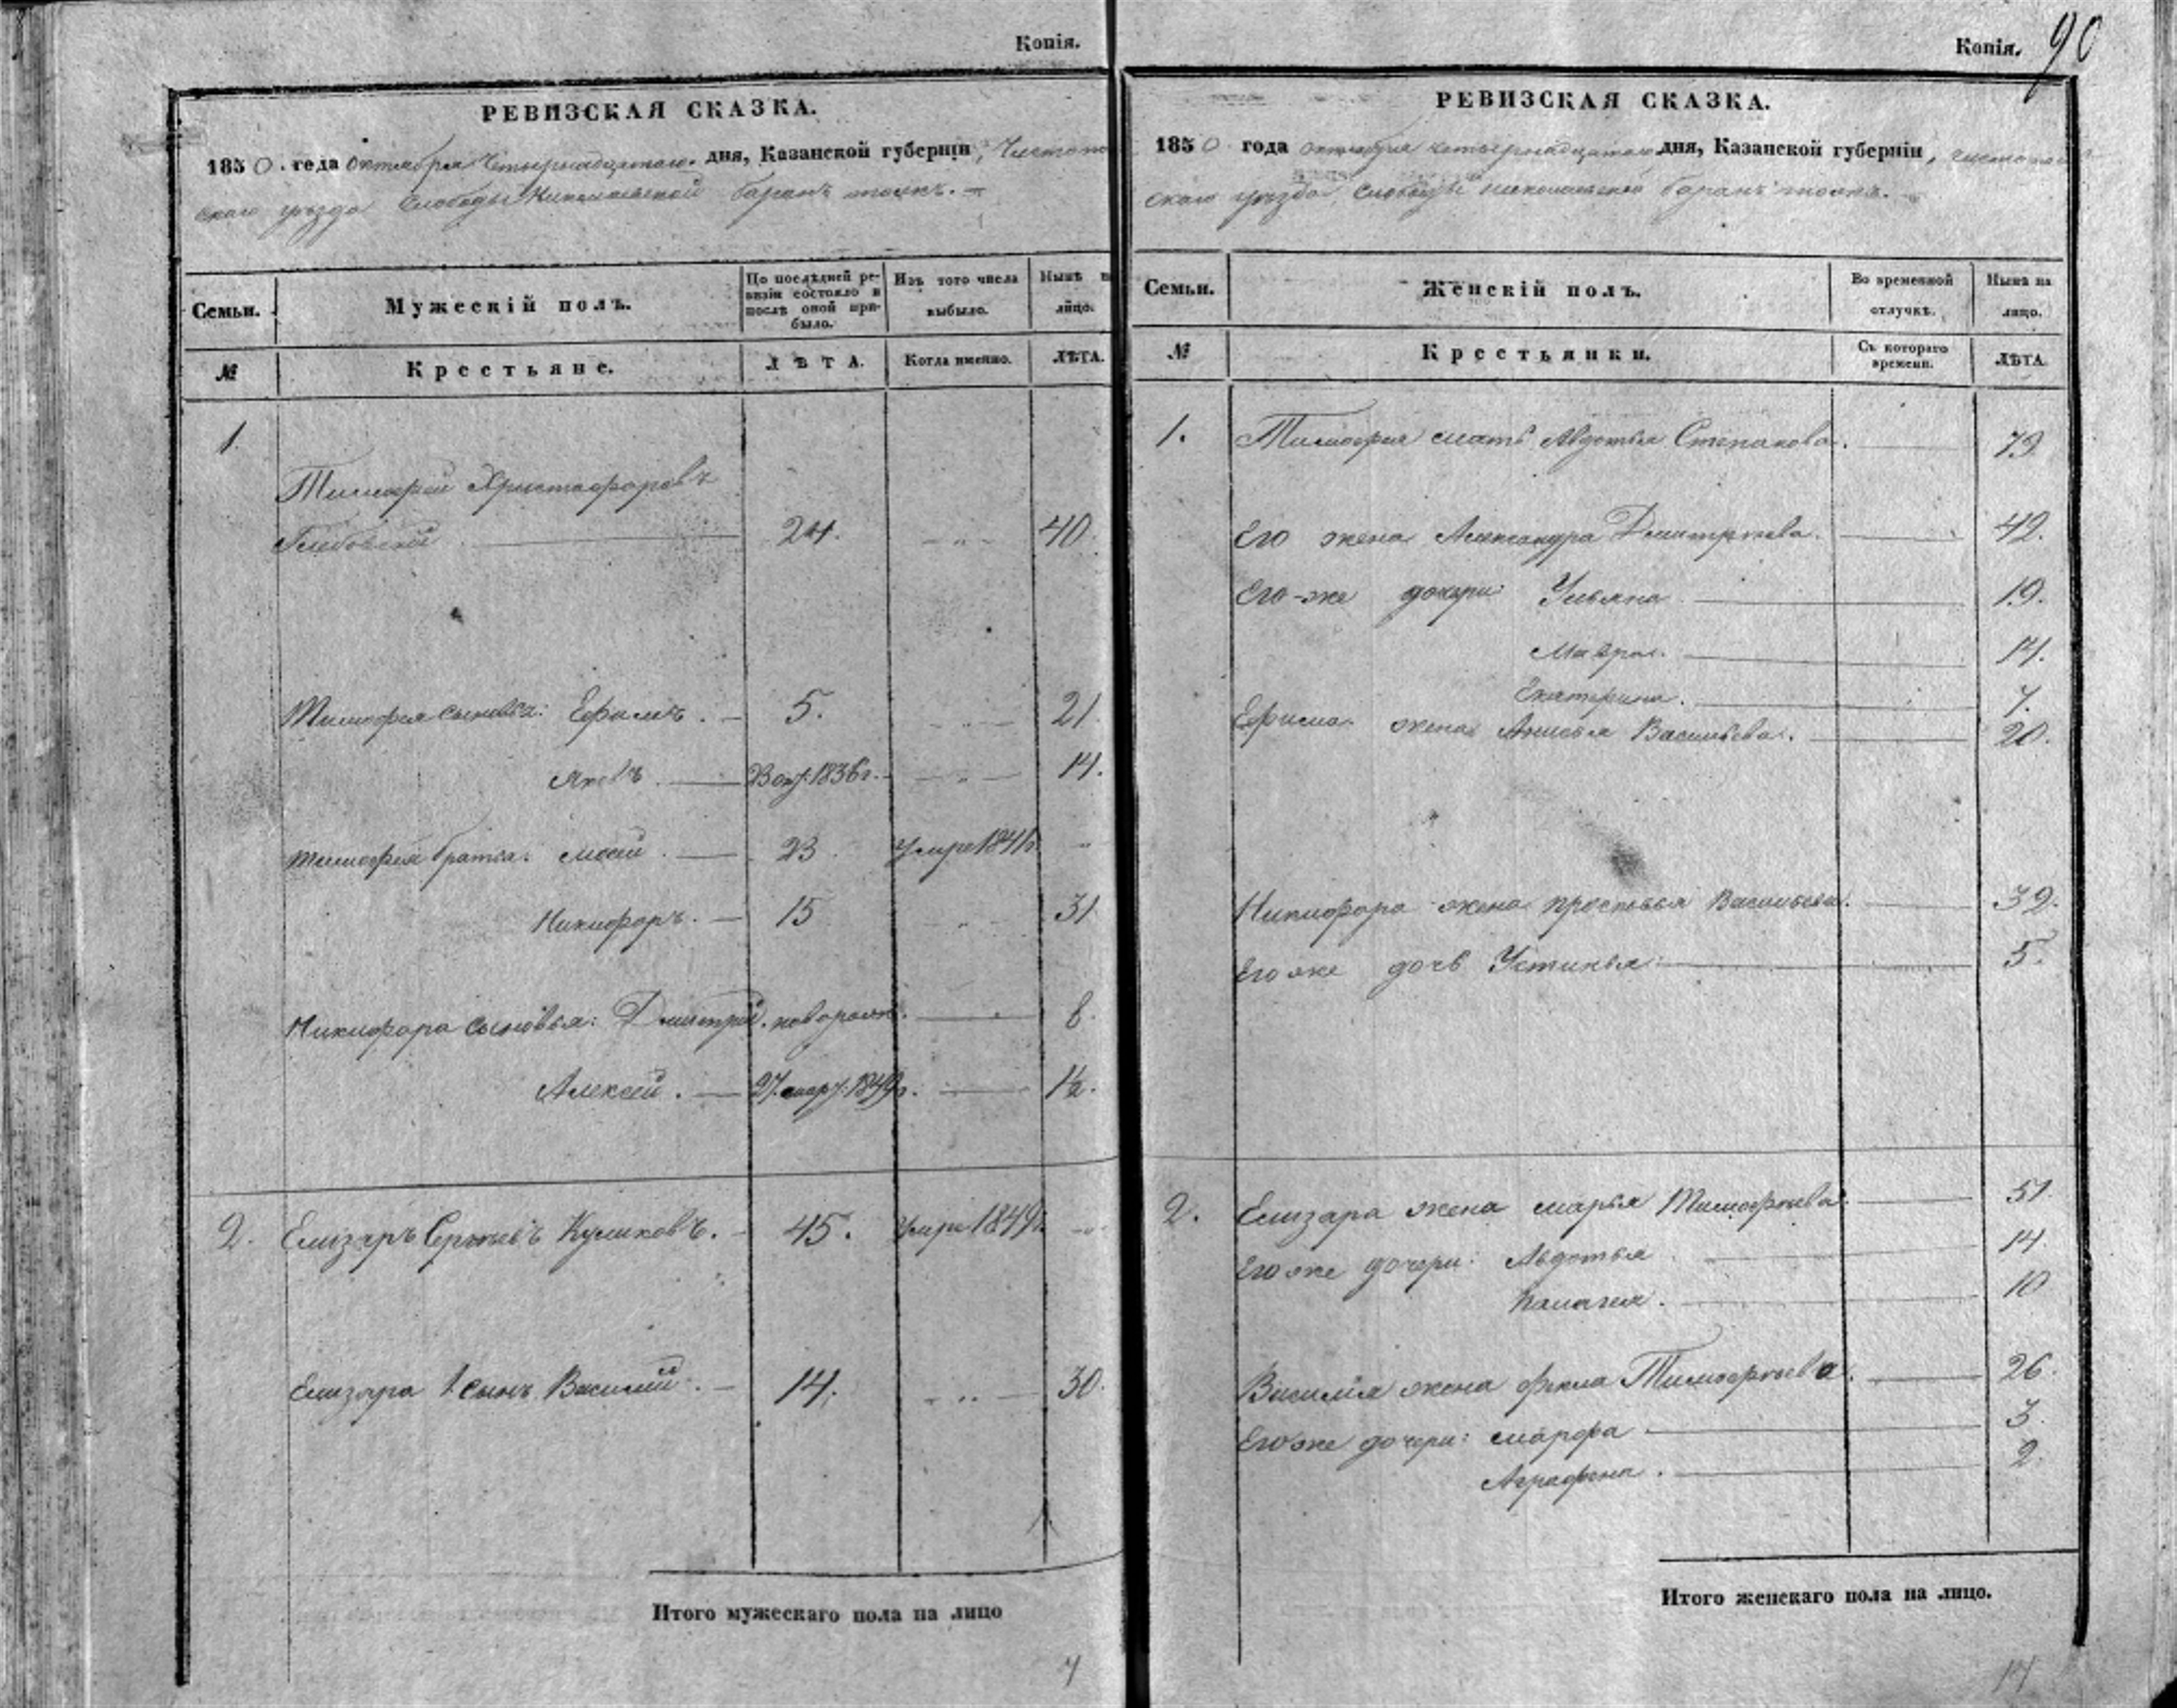 Копія.
РЕВИЗСКАЯ СКАЗКА.
1850. года октября четырнадцатаго дня, Казанской губерніи, Чистополь
скаго уѣзда Слободы Николаевской баранъ тожъ.
Семьи.
Мужескій полъ.
По послѣдней ре-
визіи состояло и
послѣ оной при-
было.
Изъ того числа
выбыло.
Нынѣ н
лицо.
№
Крестьяне.
ЛѢТА.
Когда именно.
ЛѢТА.
1.
Тимофей Христофоровъ
Глебовский 24. - „ - 40.
Тимофея сыновья: Ефимъ. 5. - „ - 21.
Яковъ. 1836 г. - „ - 14.
Тимофея братья: Мосей. 23. Умре 1841 г. „
Никифоръ. 15 „ 31.
Никифора сыновья: Дмитрий. новорожд. 8.
Алексей. 27. март. 1849 г. 1½.
2. Елизаръ Сергѣевъ Куликовъ. 45. Умре 1849 г. „
Елизара 1 сынъ Василий. 14. „ 30.
Итого мужескаго пола на лицо
7
Копія. 90
РЕВИЗСКАЯ СКАЗКА.
1850 года октября четырнадцатаго дня, Казанской губерніи, чистополь
скаго уѣзда, слободы николаевской баранъ тожъ.
Семьи.
Женскій полъ.
Во временной
отлучкѣ.
Нынѣ на
лицо.
№
Крестьянки.
Съ котораго
времени.
ЛѢТА.
1. Тимофея мать Авдотья Степанова. 79.
Его жена Александра Дмитриева. 42.
Его-же дочери: Ульяна 19.
Мавра. 14.
Екатерина. 7.
Ефима жена Анисья Васильева. 20.
Никифора жена Васильева. 32.
Его же дочь Устинья. 5.
2. Елизара жена марья Тимофѣева. 51.
Его же дочери: Авдотья 14.
Палагея. 10
Василія жена фекла Тимофѣева. 26.
Его же дочери: марфа 3.
Аграфена. 2.
Итого женскаго пола на лицо.
14